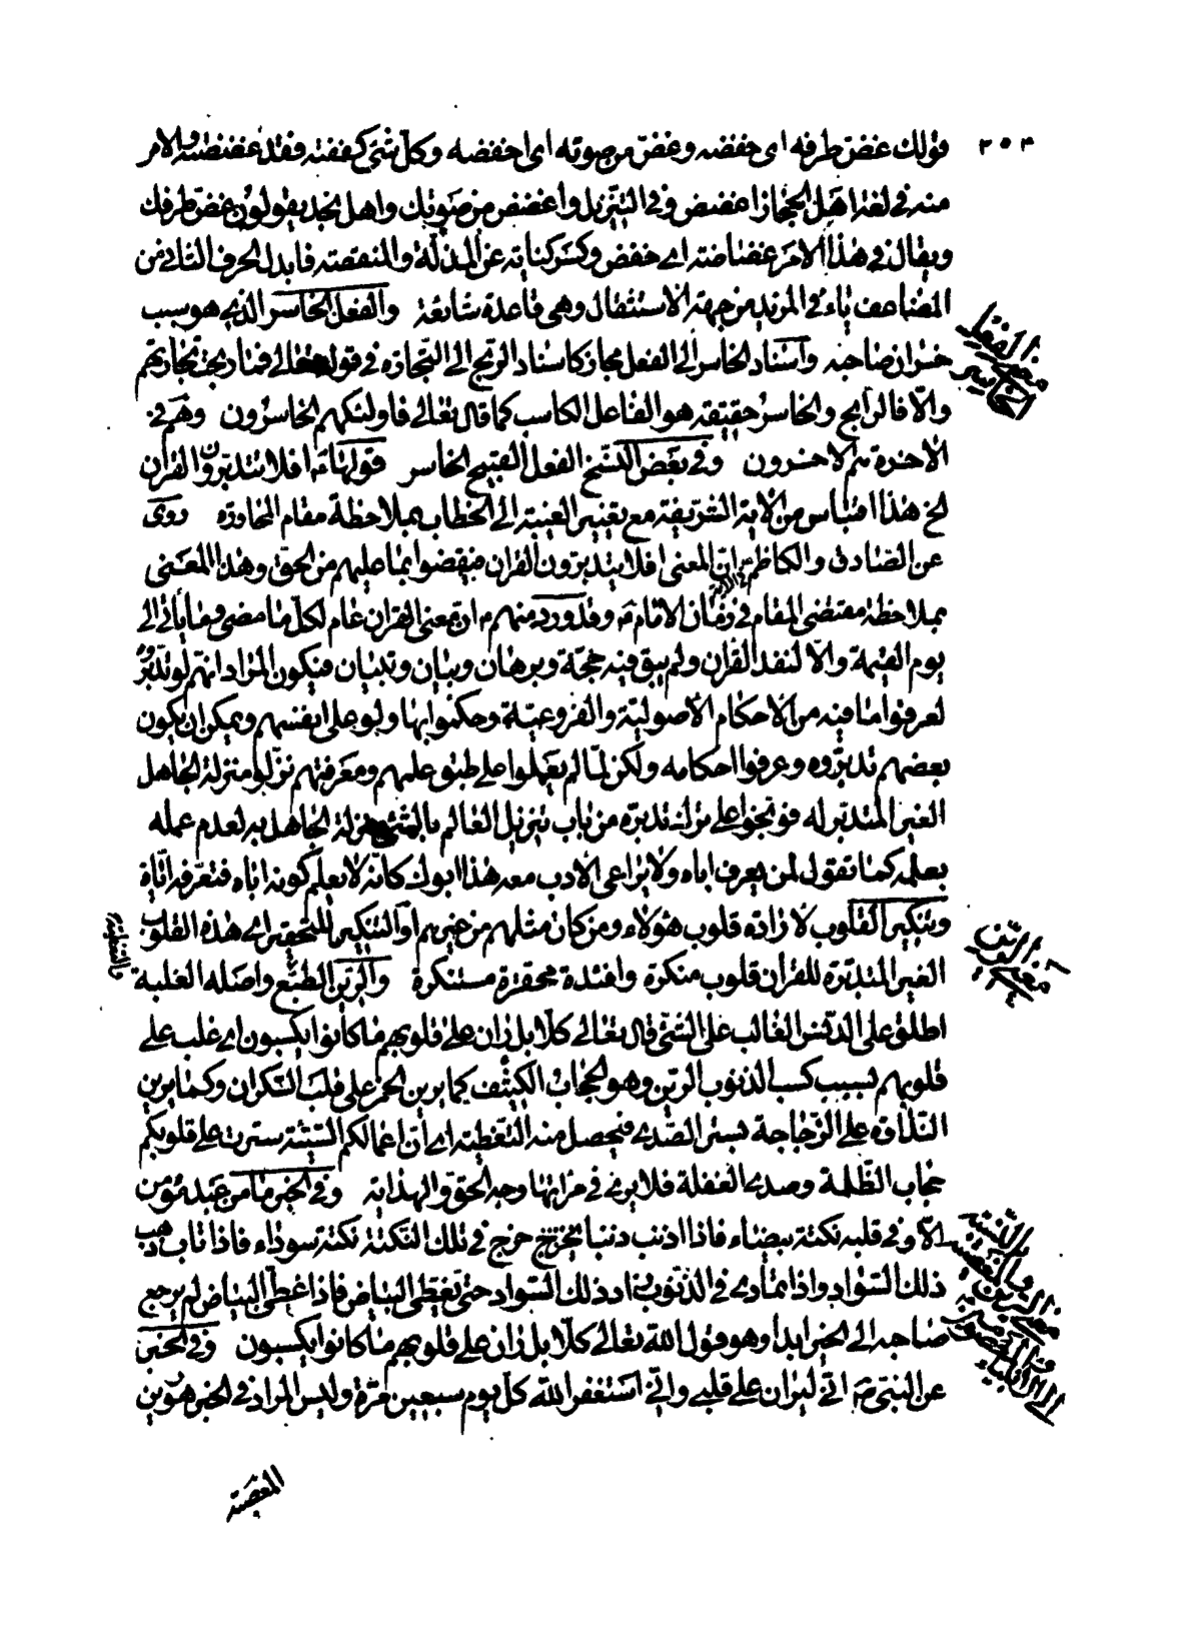 ٢٥٣
قولك غضّ طرفه اى خفضه وغضّ من صوته اى اخفضه وكلّ شئ كففته فقد غضضته والامر
منه فى لغة اهل الحجاز اغضض وفى التنزيل واغضض من صوتك واهل نجد يقولون غضّ طرفك
ويقال فى هذا الامر غضاضته اى خفض وكسر كناية عن المذلّة والمنقصة فابدل الحرف الثانى من
المضاعف ياء فى المزيد من جهة الاستثقال وهى قاعدة شايعة والفعل الخاسر الذى هو سبب
خسران صاحبه واسناد الخاسر الى الفعل مجاز كاسناد الربح الى التجارة فى قوله تعالى فما ربحت تجارتهم
والّا فالرابح والخاسر حقيقة هو الفاعل الكاسب كما قال تعالى فاولئكهم الخاسرون وهم فى
الاخرة هم الاخسرون وفى بعض النسخ الفعل القبيح الخاسر قولها افلا تتدبرون القران
الخ هذا اقتباس من الاية الشريفة مع تغيير الغيبة الى الخطاب بملاحظة مقام المحاورة روى
عن الصادق والكاظم انّ المعنى افلا يتدبرون القران فيقضوا بما عليهم من الحق وهذا المعنى
بملاحظة مقتضى المقام فى زمان الامام وقد ورد منهم ان معنى القران عام لكلّ ما مضى وما يأتى الى
يوم القيمة والّا لنفد القران ولم يبق فيه حجّة وبرهان وبيان وتبيان فيكون المراد انهم لو تدبّروه
لعرفوا ما فيه من الاحكام الاصولية والفروعيّة وحكموا بها ولو على انفسهم ويمكن ان يكون
بعضهم تدبّروه وعرفوا احكامه ولكن لمّا لم يعملوا على طبق علمهم ومعرفتهم نزّلوا منزلة الجاهل
الغير المتدبر له فوبّخوا على ترك تدبّره من باب تنزيل العالم بالشئ منزلة الجاهل به لعدم عمله
بعلمه كما تقول لمن يعرف اباه ولا يراعى الادب معه هذا ابوك كانّه لا يعلم كونه اباه فتعرّفه ايّاه
وتنكير القلوب لارادة قلوب هؤلاء ومن كان مثلهم من غيرهم او التنكير للتحقير اى هذه القلوب
الغير المتدبّرة للقران قلوب منكرة وافئدة محقرة مستنكرة والرّين الطبع واصله الغلبة
اطلق على الدنس الغالب على الشئ قال تعالى كلّا بل ران على قلوبهم ما كانوا يكسبون اى غلب على
قلوبهم بسبب كسب الذنوب الرين وهو الحجاب الكثيف كما يرين الخمر على قلب السكران وكما يرين
على الزجاجة بستر الصدى فيحصل منه التغطية اى انّ اعمالكم السيّئة سترت على قلوبكم
حجاب الظّلمة وصدى الغفلة فلا يرى فى مراتها وجه الحق والهداية وفى الخبر ما من عبد مؤمن
الّا وفى قلبه نكتة بيضاء فاذا اذنب ذنبا خرج فى تلك النكتة نكتة سوداء فاذا تاب ذهب
ذلك السّواد واذا تمادى فى الذنوب زاد ذلك السّواد حتى تغطّى البياض فاذا غطّى البياض لم يرجع
صاحبه الى الخير ابدا وهو قول الله تعالى كلّا بل ران على قلوبهم ما كانوا يكسبون وفى الخبر
عن النبى انّى ليران على قلبى وانّى استغفر الله كل يوم سبعين مرّة وليس المراد فى الخبر هو رين
المعصية
معنى الفعل الخاسر
معنى الرين